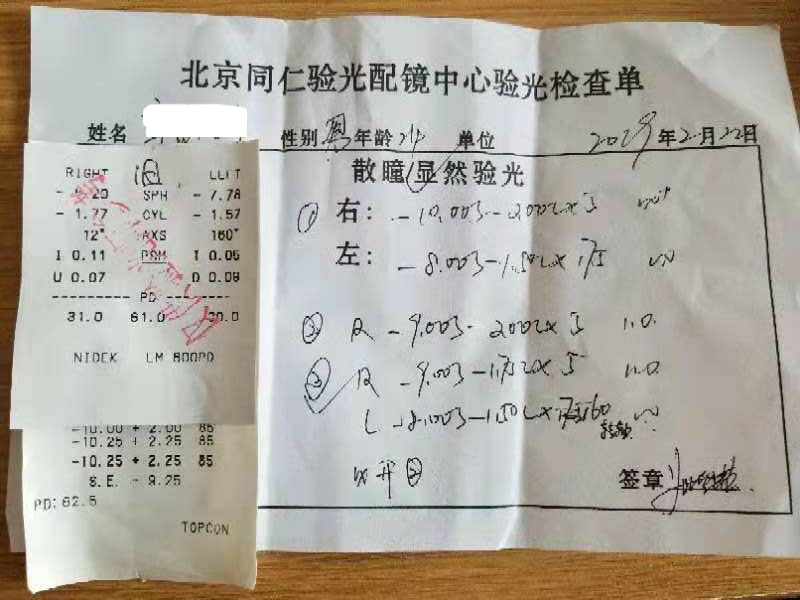 北京同仁验光配镜中心验光检查单
姓名 性别 男 年龄 24 单位 年2月22日
散瞳/显然验光
① 右: -10.00S -2.00C×5
左: -8.00S -1.50C×175
② R -9.00S -2.00C×5 1.0
③ R -9.00S -1.75C×5 1.0
L -8.00S -1.50C× 160
签章
RIGHT 旧 LEFT
SPH - 7.78
- 1.77 CYL - 1.57
12° AXS 160°
I 0.11 PSM I 0.05
U 0.07 D 0.09
PD
31.0 61.0 30.0
NIDEK LM 800PD
-10.00 + 2.00 85
-10.25 + 2.25 85
-10.25 + 2.25 85
S.E. - 9.25
PD:62.5
TOPCON